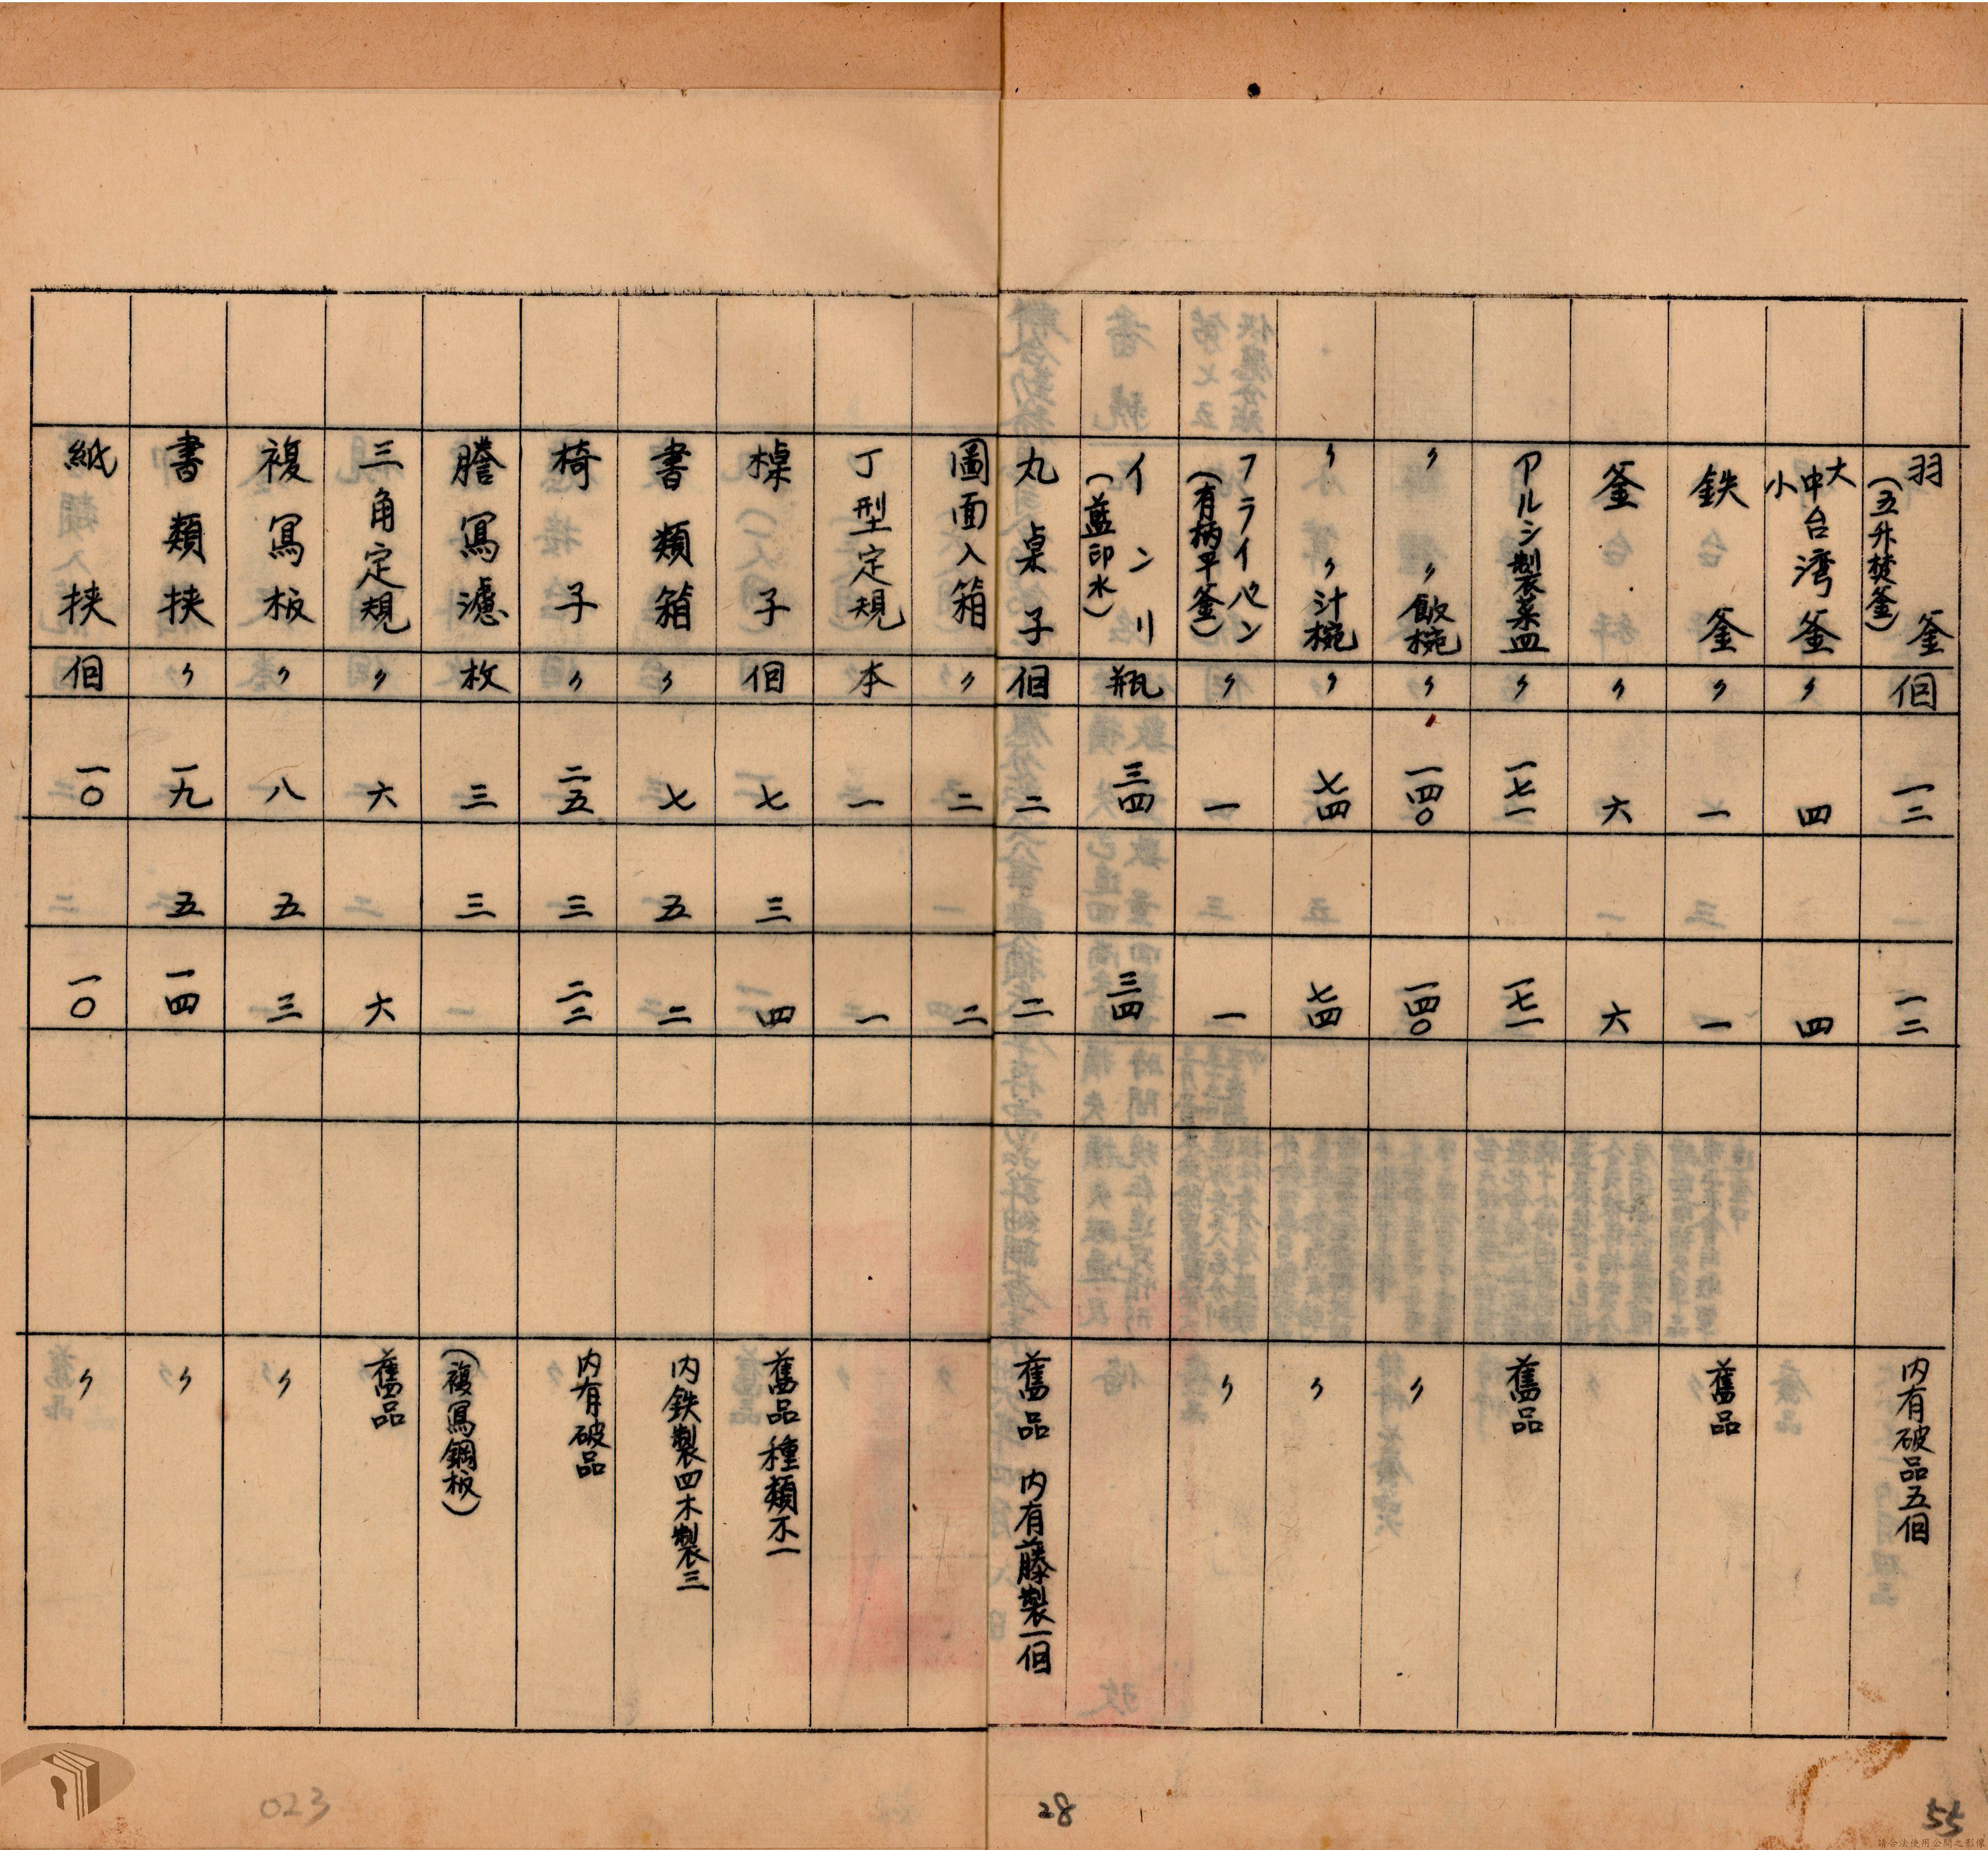 羽釜(五升焚釜) 個 一二 一二 内有破品五個
大中小台湾釜 〃 四 四
鉄釜 〃 一 一 舊品
釜 〃 六 六
アルシ製菜皿 〃 一七一 一七一 舊品
〃 〃飯椀 〃 一四〇 一四〇 〃
〃 〃汁椀 〃 七四 七四 〃
フライパン(有柄平釜) 〃 一 一 〃
インリ(藍印水) 瓶 三四 三四
丸桌子 個 二 二 舊品 内有藤製一個
圖面入箱 〃 二 二
丁型定規 本 一 一
槕子 個 七 三 四 舊品種類不一
書類箱 〃 七 五 二 内鉄製四木製三
椅子 〃 二五 三 二二 内有破品
謄寫濾 枚 三 三 (複寫鋼板)
三角定規 〃 六 六 舊品
複寫板 〃 八 五 三 〃
書類挟 〃 一九 五 一四 〃
紙挟 個 一〇 一〇 〃
023
28
55
請合法使用公開之影像